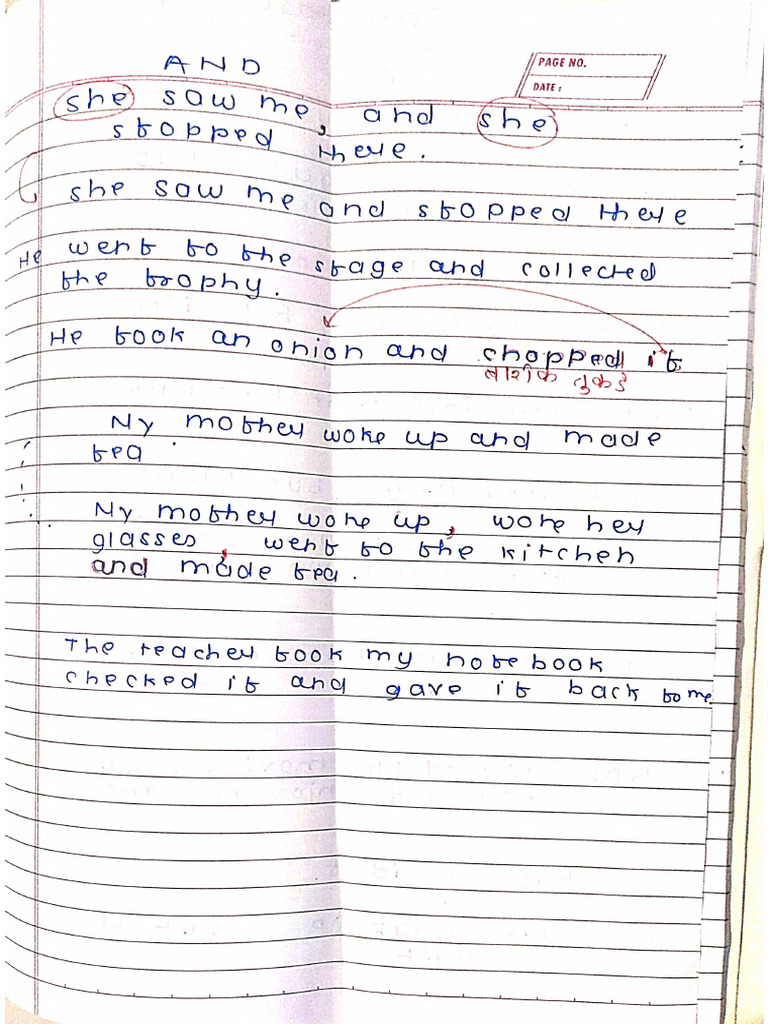 AND
PAGE NO.
DATE :
she saw me, and she
stopped there.
she saw me and stopped there
He went to the stage and collected
the trophy.
He took an onion and chopped it
बारीक तुकडे
My mother woke up and made
tea
My mother woke up, wore her
glasses, went to the kitchen
and made tea.
The teacher took my notebook
checked it and gave it back to me